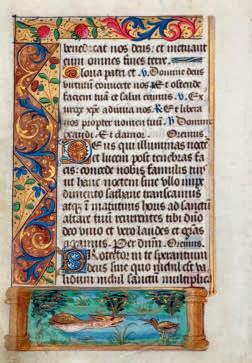 benedicat nos deus: et metuant
eum omnes fines terre
Gloria patri et. v. Domine deus
virtutum converte nos R Et ostende
faciem tuam et salvi erimus. v. Ex
surge xpe adiuva nos. R Et libera
nos propter nomen tuum V Domine
exaudi. E et clamor. Oremus.
Deus qui illuminas nocte
et lucem post tenebras fa
cis: concede nobis famulis tuis
ut hanc noctem sine ullo impe
dimento sathane transeamus
atque in matutinis horis ad sanctum
altare tuum recurrentes tibi duo
deo vivo et vero laudes et gras
agamus. Per dnm. Oremus.
Protector in te sperantium
deus sine quo nichil est va
lidum nichil sanctum multiplica